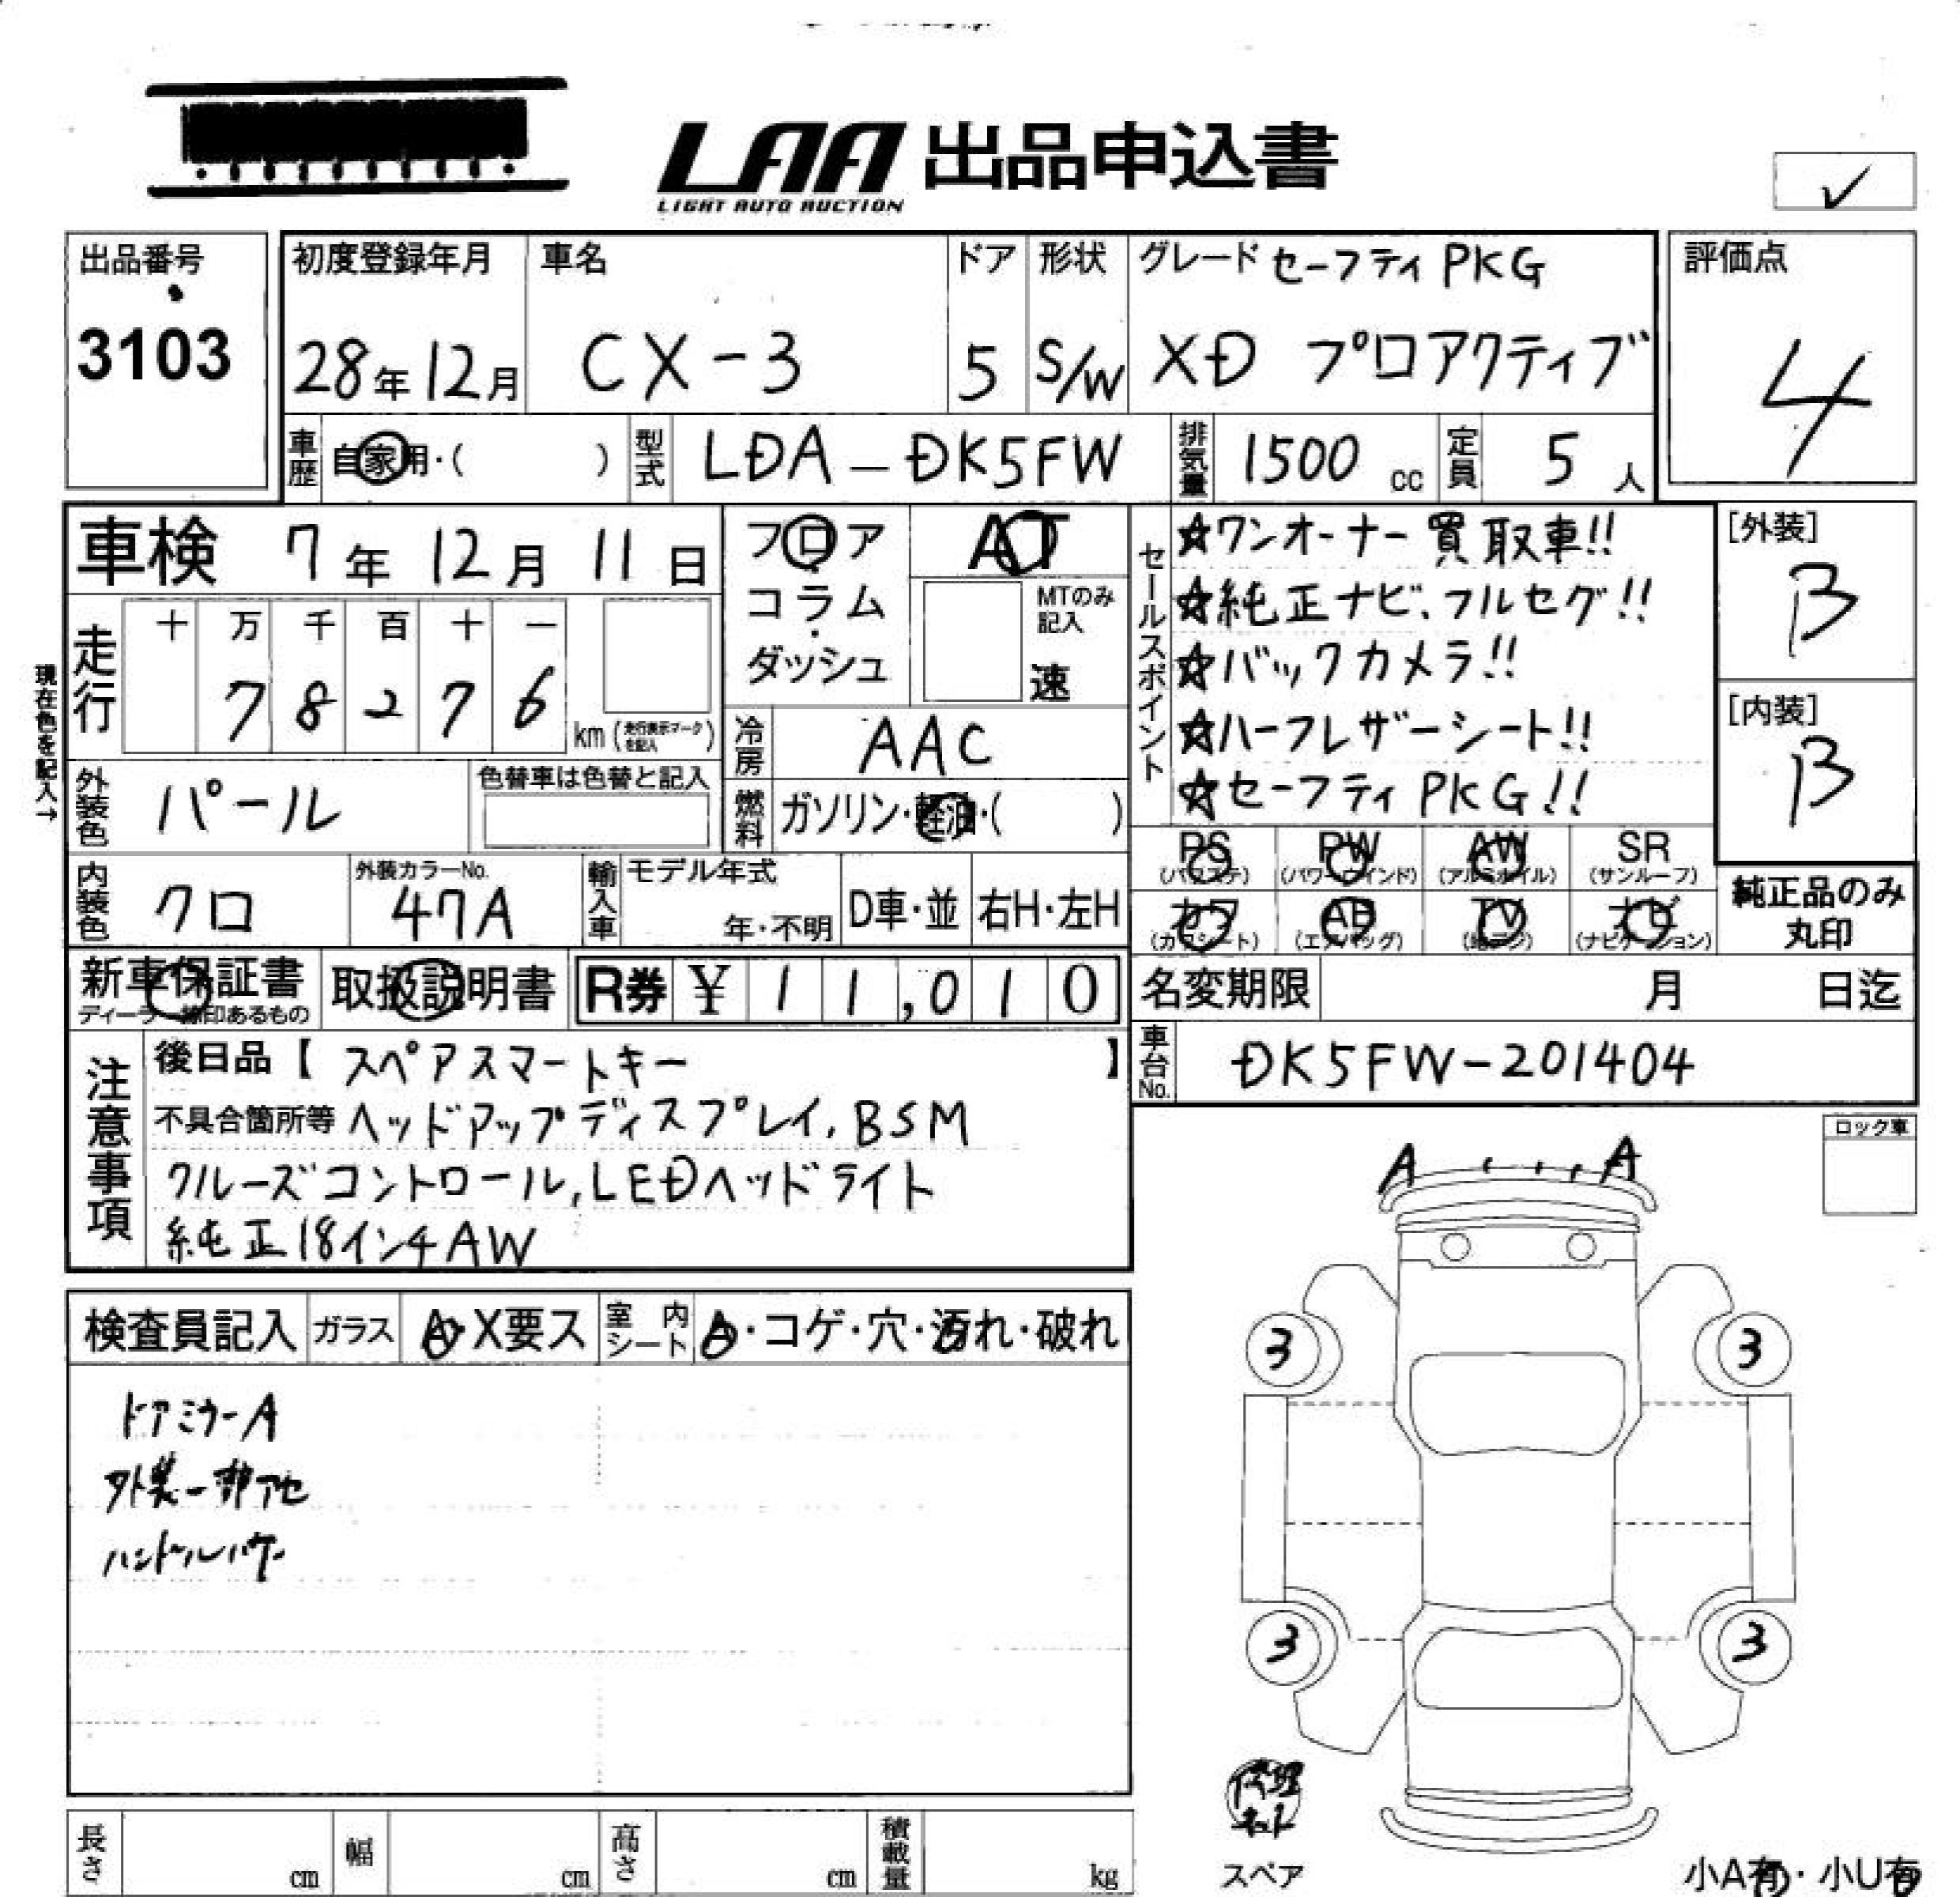 LAA 出品申込書
LIGHT AUTO AUCTION
✓
出品番号
3103
初度登録年月
28年12月
車名
CX-3
ドア
5
形状
S/W
グレード セーフティ PKG
XD プロアクティブ
評価点
4
車歴 自家用・( )
型式 LDA-DK5FW
排気量 1500 cc
定員 5 人
車検 7年 12月 11日
走行 十 万 千 百 十 一
7 8 2 7 6 km (走行表示マークを記入)
現在色を記入→
フロア
コラム
・
ダッシュ
AT
MTのみ記入
速
冷房 AAC
燃料 ガソリン・軽油・( )
セールスポイント
☆ワンオーナー買取車!!
☆純正ナビ、フルセグ!!
☆バックカメラ!!
☆ハーフレザーシート!!
☆セーフティPKG!!
[外装]
B
[内装]
B
外装色 パール
色替車は色替と記入
内装色 クロ
外装カラーNo.
47A
輸入車 モデル年式
年・不明
D車・並
右H・左H
PS (パワステ)
PW (パワーウインド)
AW (アルミホイル)
SR (サンルーフ)
カワ (カワシート)
AB (エアバッグ)
TV (地デジ)
ナビ (ナビゲーション)
純正品のみ
丸印
新車保証書
ディーラー捺印あるもの
取扱説明書
R券 ¥ 11,010
名変期限 月 日迄
車台No. DK5FW-201404
注意事項
後日品【 スペアスマートキー 】
不具合箇所等 ヘッドアップディスプレイ, BSM
クルーズコントロール, LEDヘッドライト
純正18インチAW
ロック車
検査員記入
ガラス A・X要ス
室内シート A・コゲ・穴・汚れ・破れ
ドアミラーA
外装一部アセ
ハンドルハゲ
A A
3 3
3 3
修理キット
スペア
長さ cm
幅 cm
高さ cm
積載量 kg
小A有・小U有